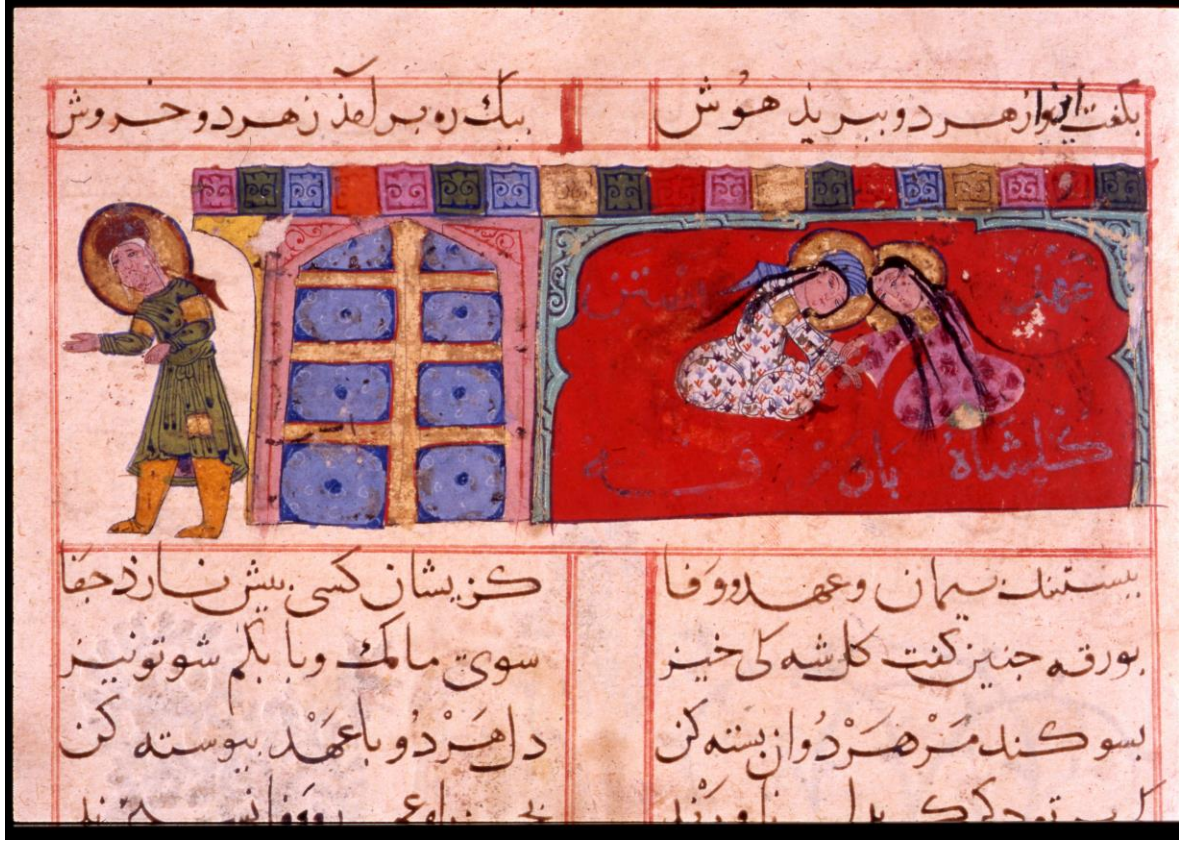 بگفت این و از هر دو ببرید هوش بیک ره برآمذ ز هر دو خروش
عهد بستن
گلشاه بان ورقه
ببستند پیمان و عهد و وفا کزیشان کسی بیش نارذ جفا
بورقه جنین کفت کلشه کی خیز سوی مامک و بابکم شو تو نیز
بسوکند مر هر دوان بسته کن دل هر دو با عهد پیوسته کن